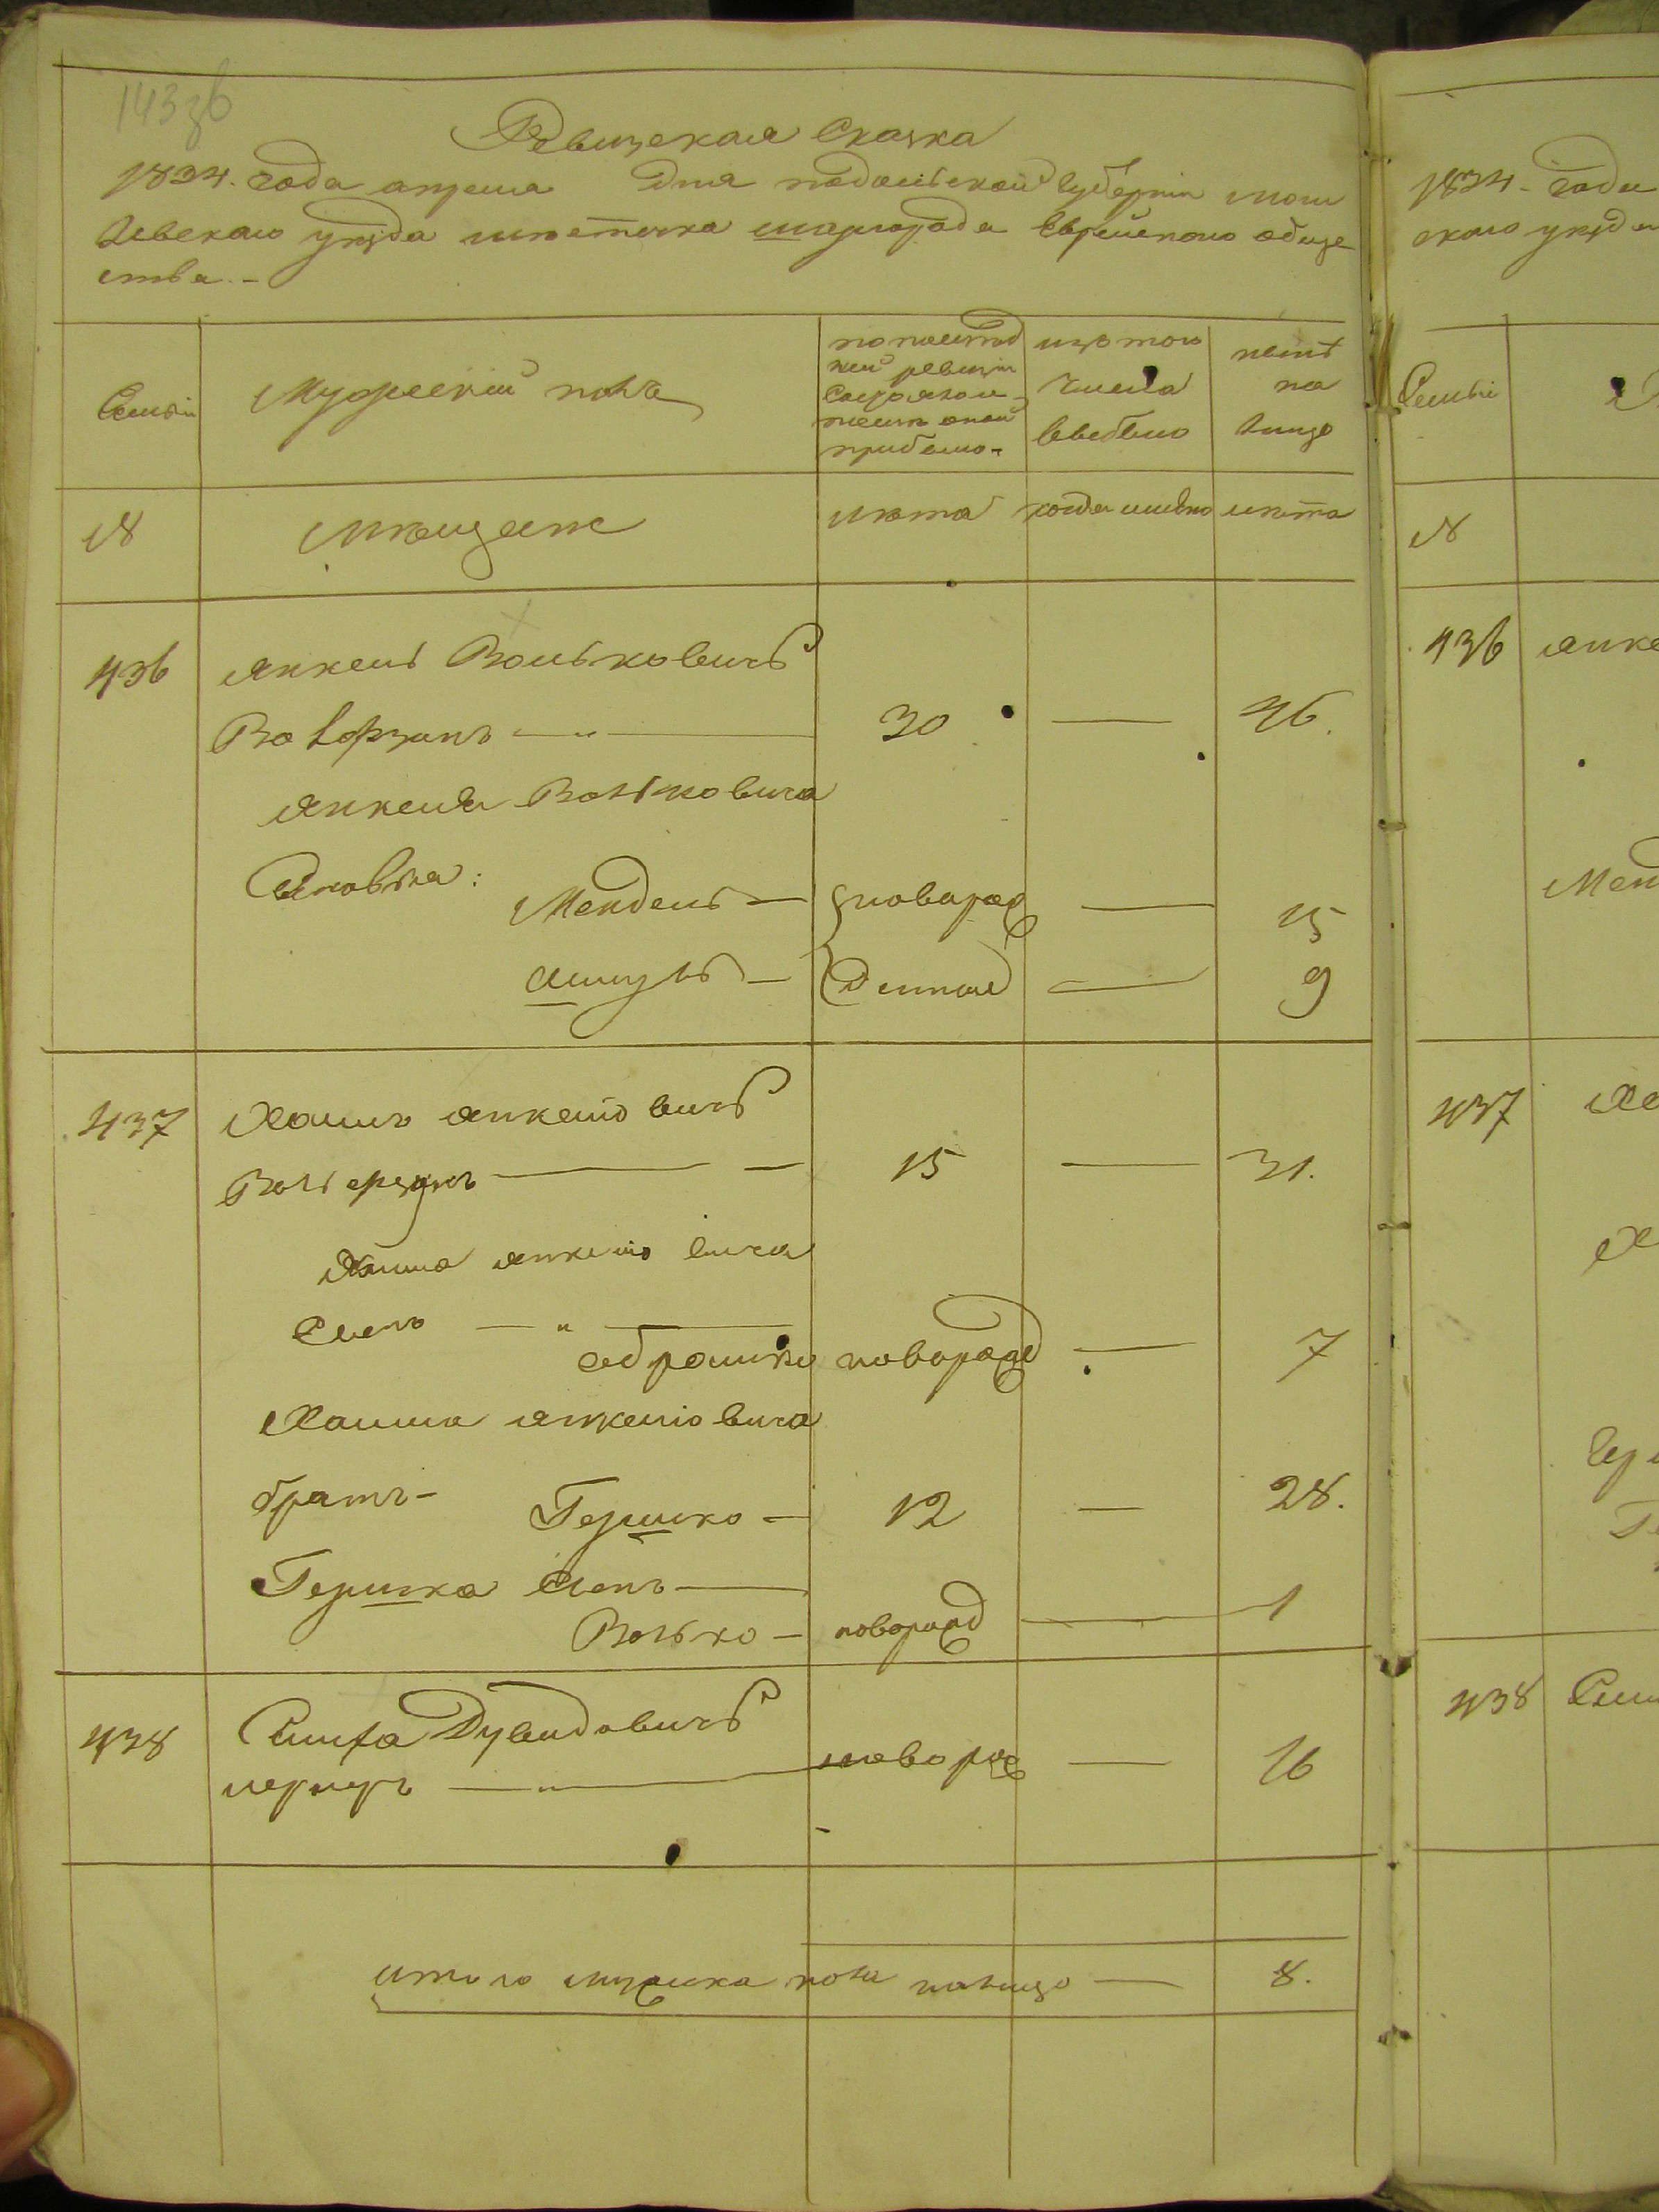 143зв
Ревизская Сказка
1834. года апреля дня подольской губерніи моги
левскаго уезда местечка шаргорода Еврейскаго обще
ства.-
Семьи
Мужескій полъ
по послед
ней ревизіи
состояло и
после оной
прибыло-
изъ того
числа
выбыло
ныне
на
лицо
№
Мещане
лета
когда имянно
лета
436
Янкель Вольковичъ
30
46.
Янкеля Вольковича
Сыновья:
Мендель — новорож
15
Шмуль — денные
9
437
Хаимъ Янкелiовичъ
15
31.
Хаима Янкелiовича
Сынъ — „ —
Абрамко новорожд — 7
Хаима Янкелiовича
братъ-
Гершко — 12 — 28.
Гершка Сынъ —
Волько — новорожд — 1
438
Симха Дувидовичъ
лернеръ — „ — новорож — 16
итого мужеска пола налицо — 8.
1834- года
скаго уезда
Семьи
№
436
Янке
Менд
437
Ха
Х
Гер
438
Сим